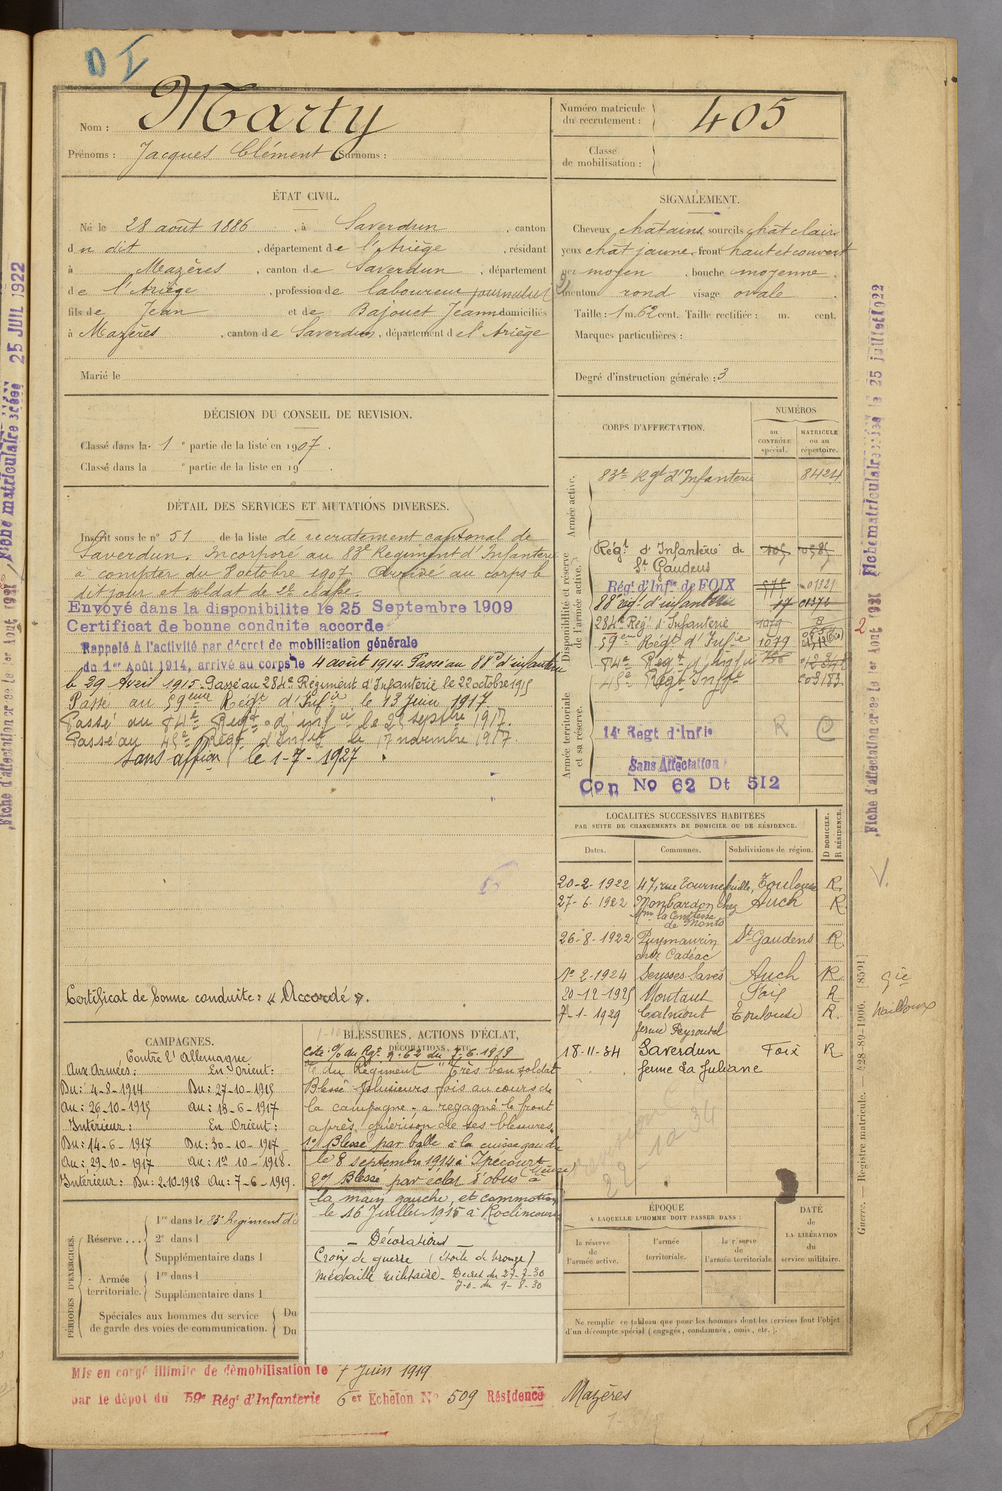 Nom : Marty
Prénoms : Jacques Clément Surnoms :
Numéro matricule du recrutement : 405
Classe de mobilisation :
ÉTAT CIVIL.
Né le 28 août 1886, à Saverdun, canton
du dit, département de l'Ariège, résidant
à Mazères, canton de Saverdun, département
de l'Ariège, profession de laboureur journalier
fils de Jean et de Bajouet Jeanne domiciliés
à Mazères, canton de Saverdun, département de l'Ariège
Marié le
SIGNALEMENT.
Cheveux châtains sourcils chat clair
yeux chat jaune, front haut et couvert
nez moyen, bouche moyenne.
menton rond visage ovale.
Taille : 1 m. 62 cent. Taille rectifiée : m. cent.
Marques particulières :
Degré d'instruction générale : 3
DÉCISION DU CONSEIL DE REVISION.
Classé dans la 1e partie de la liste en 1907.
Classé dans la e partie de la liste en 19
DÉTAIL DES SERVICES ET MUTATIONS DIVERSES.
Inscrit sous le n° 51 de la liste de recrutement cantonal de
Saverdun. Incorporé au 83e Régiment d'Infanterie
à compter du 8 octobre 1907. Arrivé au corps le
dit jour et soldat de 2e classe.
Envoyé dans la disponibilite le 25 Septembre 1909
Certificat de bonne conduite accorde
Rappelé à l'activité par décret de mobilisation générale
du 1er Août 1914, arrivé au corps le 4 août 1914. Passé au 88e d'infanterie
le 29 Avril 1915. Passé au 284e Régiment d'Infanterie le 22 octobre 1915
Passé au 59eme Regt d'Infie le 13 Juin 1917.
Passé au Regt d'infie le 25 septbre 1917.
Passé au Régt d'Infie le 17 novembre 1917.
Sans affion le 1-7-1927.
Certificat de bonne conduite : « Accordé ».
CORPS D'AFFECTATION.
NUMÉROS
au CONTRÔLE spécial.
MATRICULE ou au répertoire.
Armée active.
83e Rgt d'Infanterie 8424
Disponibilité et réserve de l'armée active.
Régt d'Infanterie de
St Gaudens
Régt d'Infie de FOIX
88e régt d'infanterie 17
284e Régt d'Infanterie 1079
59eme Régt d'Infie 1079
Armée territoriale et sa réserve.
14e Régt d'Infie R
Sans Affectation
Con No 62 Dt 512
LOCALITÉS SUCCESSIVES HABITÉES
PAR SUITE DE CHANGEMENTS DE DOMICILE OU DE RÉSIDENCE.
Dates. Communes. Subdivisions de région. D DOMICILE. R RÉSIDENCE.
20-2-1922 47, rue Tournefeuille, Toulouse R
27-6-1922 Monbardon chez Auch R
Mme la Comtesse
de Monts
26-8-1922 Puymaurin St Gaudens R
chez Cadéac
1-2-1924 Seysses Savès Auch R
20-12-1925 Montaut Foix R
7-1-1929 Calmont Toulouse R.
ferme Peyroutel
18-11-34 Saverdun Foix R
ferme La Juliane
gie
Nailloux
CAMPAGNES.
Contre l'Allemagne
Aux Armées : En Orient :
Du : 4-8-1914 Du : 27-10-1915
au : 26-10-1915 au : 13-6-1917
Intérieur : En Orient :
Du : 14-6-1917 Du : 30-10-1917
au : 29-10-1917 au : 1er 10-1918.
Intérieur : Du : 2-10-1918 Au : 7-6-1919.
BLESSURES, ACTIONS D'ÉCLAT,
DÉCORATIONS, ETC.
Cité o/ du Rgt n° 62 du 7-6-1918
du Régiment "Très bon soldat
Blessé plusieurs fois au cours de
la campagne - a regagné le front
après guérison de ses blessures.
1°/ Blessé par balle à la cuisse gauche
le 8 septembre 1914 à Ipécourt
(Meuse)
2°/ Blessé par éclat d'obus à
la main gauche, et commotion
le 16 Juillet 1915 à Roclincourt
- Décorations -
Croix de guerre (étoile de bronze)
Médaille militaire - Décret du 27-7-30
J.O. du 9-8-30
PÉRIODES D'EXERCICES.
Réserve... 1re dans le 83e Régiment d'I
2e dans l
Supplémentaire dans l
Armée territoriale. 1re dans l
Supplémentaire dans l
Spéciales aux hommes du service
de garde des voies de communication. Du
Du
ÉPOQUE
A LAQUELLE L'HOMME DOIT PASSER DANS :
la réserve de l'armée active.
l'armée territoriale.
la réserve de l'armée territoriale.
DATE de LA LIBÉRATION du service militaire.
Ne remplir ce tableau que pour les hommes dont les services font l'objet
d'un décompte spécial (engagés, condamnés, omis, etc.).
Mis en congé illimité de démobilisation le 7 Juin 1919
par le dépot du 59e Régt d'Infanterie 6 er Echelon No 509 Résidence Mazères
Guerre. — Registre matricule. — 428-89-1906. [8591]